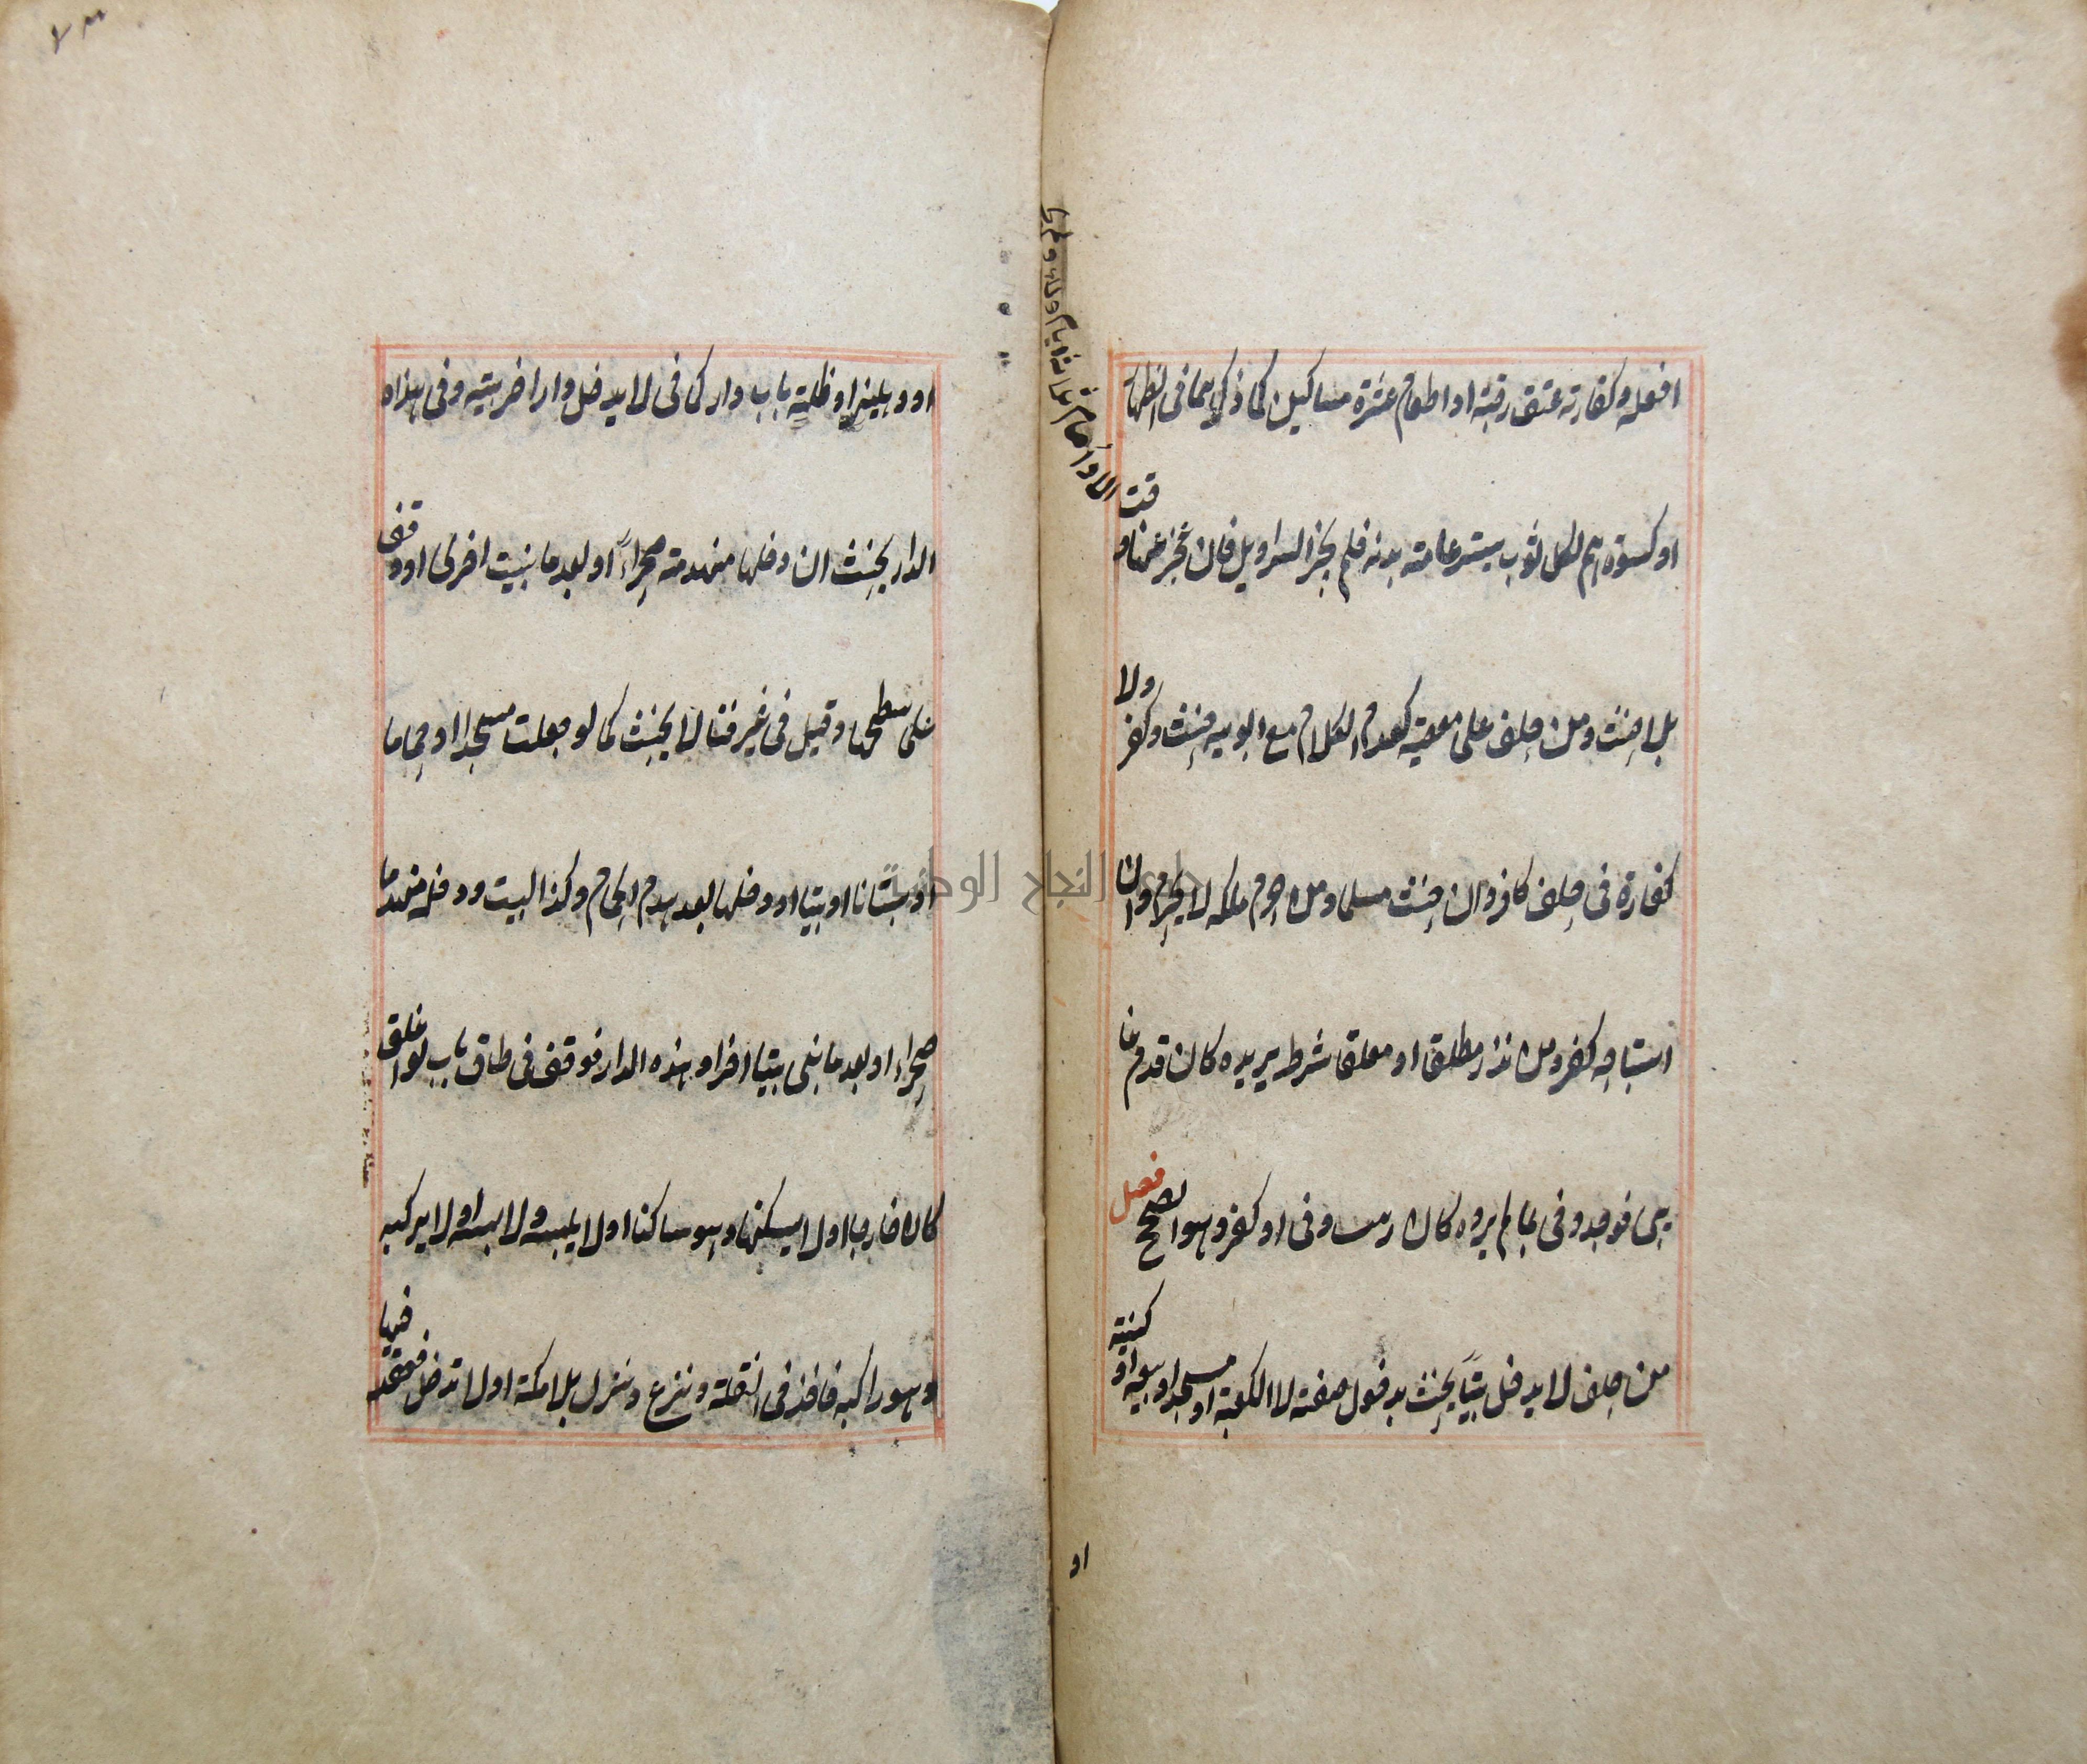 افعله وكفارته عتق رقبة او اطعام عشرة مساكين كما ذكر هما فى الظهار
او كسوتهم لكل ثوب يستر عامة بدنه فلم يجز السراويل فان عجز عنها وقت
بل احنث ومن حلف على معصية كعدم الكلام مع ابويه حنث وكفر ولا
كفارة فى حلف كافر وان حنث مسلما ومن حرم ملكه لا يحرم وان
استباحه كفر ومن نذر مطلقا او معلقا بشرط يريده كان قدم غا
يبى فوجد وفى بما لم يرده كان زنيت وفى او كفر وهو الصحيح فصل
من حلف لا يدخل بيتا يحنث بدخول صفة لا الكعبة او مسجد او بيعة او كنيسة
او
او دهليز او ظلة باب دار كما فى لا يدخل دارا فدخل خربة وفى هذه
الدار يحنث ان دخلها منهدمة صحراء او بعد ما بنيت اخرى او وقف
على سطحها وقيل فى عرفنا لا يحنث كما لو جعلت مسجدا او حماما
او بستانا او بيتا او دخلها بعد هدم الحمام وكذا البيت ودخله منهدما
صحراء او بعد ما بنى بيتا اخر او هذه الدار فوقف فى طاق باب لو اغلق
كان خارجا او لا يسكنها وهو ساكنها او لا يلبسه وهو لابسه او لا يركبه
وهو راكبه فاخذ فى النقلة ونزع ونزل بلا مكث او لا تدخل فقعد فيها